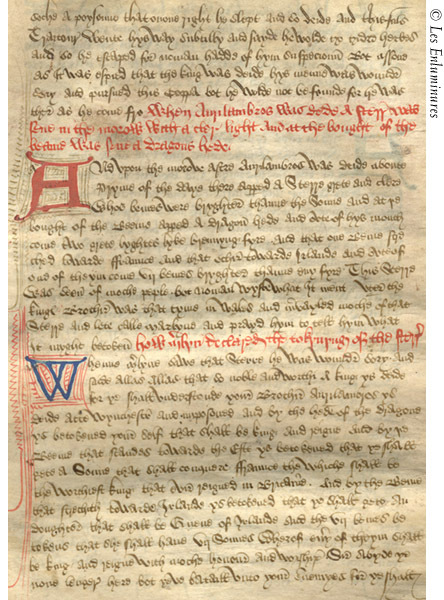 suche a poysone that onone right he slept and so deide and this fals
Traitour wente hys way subtilly and saide he wolde to gedre herbes
And so he escaped for noman hadde of hym suspeccioun Bot assone
as it was espied that the king was deide hys menne was wounder
sory and pursued this Coppa bot he wolde not be founde for he was
ther as he come fro When Aurilambros was dede a sterr was
sene in the morow with a cler light and at the bought of the
beame was sene a dragons hede
And upon the morow aftre Aurilambros was deide aboute
Pryme of the daye there apped a Sterre grete and clere
Whos bemes were bryghter thanne the Sonne and at ye
bought of the Beme apped a Dragon hede and out of hys mouth
come two grete lyghtes lyke brennyng fyre and that one Beme
toward ffraunce and that other towarde Irlande and oute of
one of the come vii bemes bryghter thanne eny fyre This Sterre
Was seen of moche peple bot noman wyste what it ment Uter the
kings Brother was that tyme in Wales and mervayled moche of that
Sterre and lete calle Marlyone and prayd hym to tell hym what
it might betoken how Merlyn declared the tokenyng of the sterr
Whenne Merlyne sawe that Sterre he was wounder sory and
saide allas Allas that so noble and worthi a king ys dede
for ye shall understonde your Brother Aurilambros ys
deide atte Wynchestre and inpoysoned and by the hede of the dragone
ys betokened your self that shall be king and reigne And by ye
Beme that standes towarde the Est ys betokened that ye shall
gete a Sonne that shall conquere ffraunce the whiche shall be
the worthiest king that ever reigned in Britane And by the Beme
that strecchith towarde Irlande ys betokened that ye shall gete an
doughter that shall be Quene of Irlande And the vii bemes be
tokens that she shall have vii Sonnes Wherof evry of theym shall
be king and reigne with moche honour and worship And abyde ye
none lenger here bot yeve bataill unto your enemyes for ye shall
© Les Enluminures